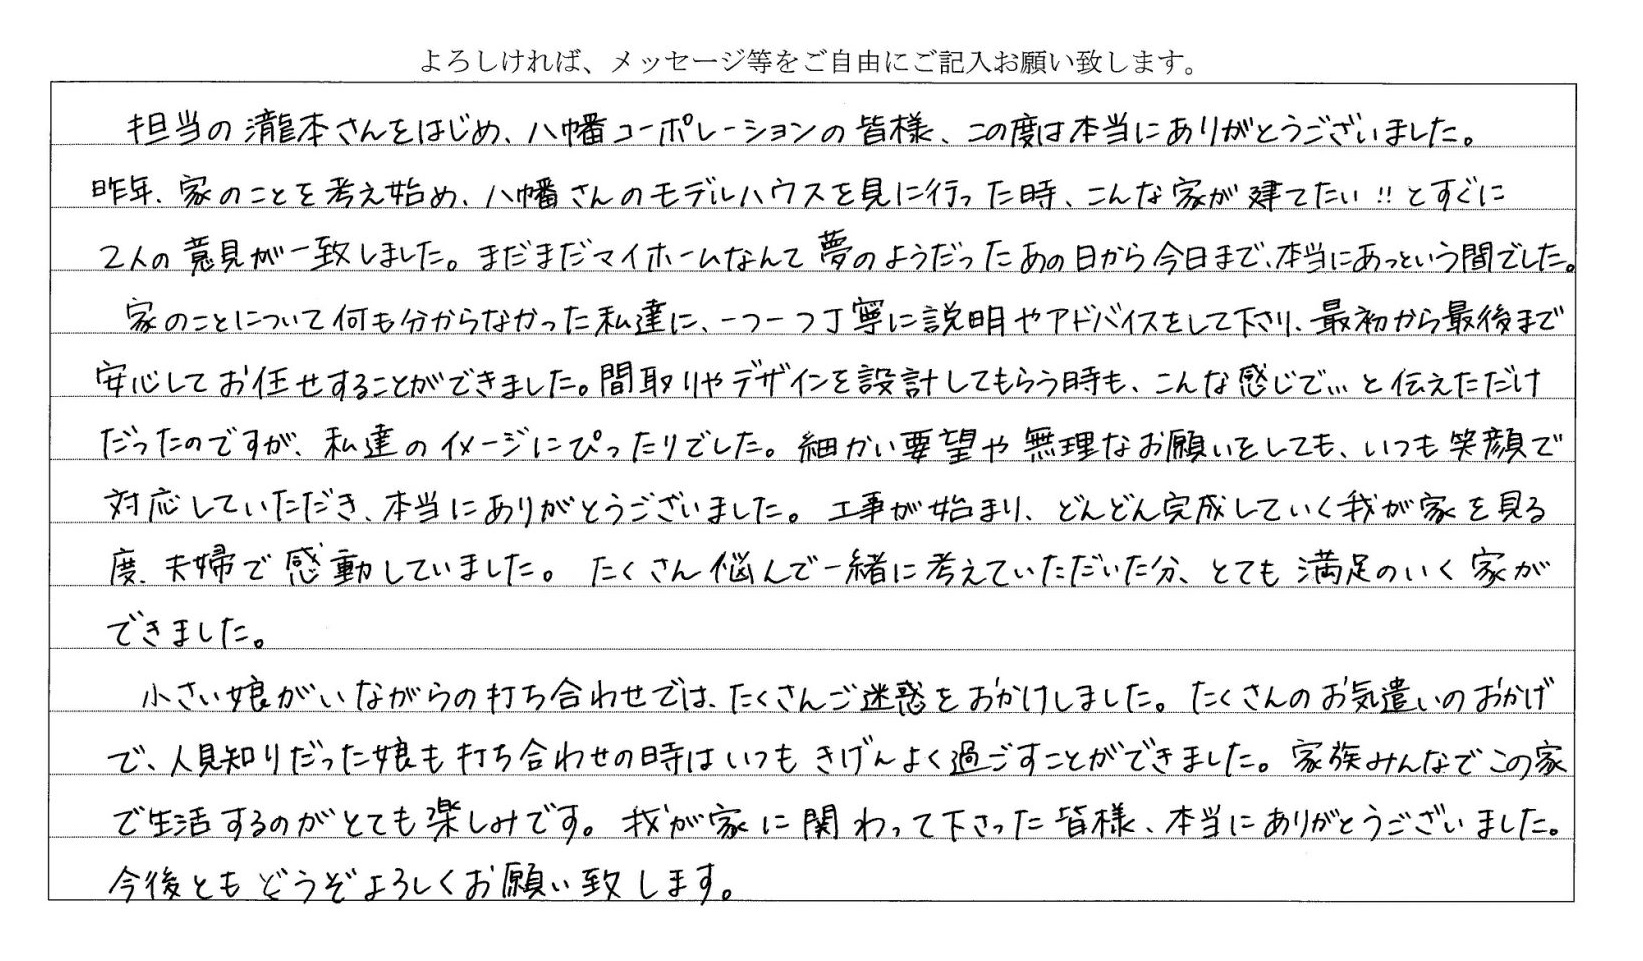 よろしければ、メッセージ等をご自由にご記入お願い致します。
担当の瀧本さんをはじめ、八幡コーポレーションの皆様、この度は本当にありがとうございました。
昨年、家のことを考え始め、八幡さんのモデルハウスを見に行った時、こんな家が建てたい!!とすぐに
2人の意見が一致しました。まだまだマイホームなんて夢のようだったあの日から今日まで、本当にあっという間でした。
家のことについて何も分からなかった私達に、一つ一つ丁寧に説明やアドバイスをして下さり、最初から最後まで
安心してお任せすることができました。間取りやデザインを設計してもらう時も、こんな感じで…と伝えただけ
だったのですが、私達のイメージにぴったりでした。細かい要望や無理なお願いをしても、いつも笑顔で
対応していただき、本当にありがとうございました。工事が始まり、どんどん完成していく我が家を見る
度、夫婦で感動していました。たくさん悩んで一緒に考えていただいた分、とても満足のいく家が
できました。
小さい娘がいながらの打ち合わせでは、たくさんご迷惑をおかけしました。たくさんのお気遣いのおかげ
で、人見知りだった娘も打ち合わせの時はいつもきげんよく過ごすことができました。家族みんなでこの家
で生活するのがとても楽しみです。我が家に関わって下さった皆様、本当にありがとうございました。
今後ともどうぞよろしくお願い致します。